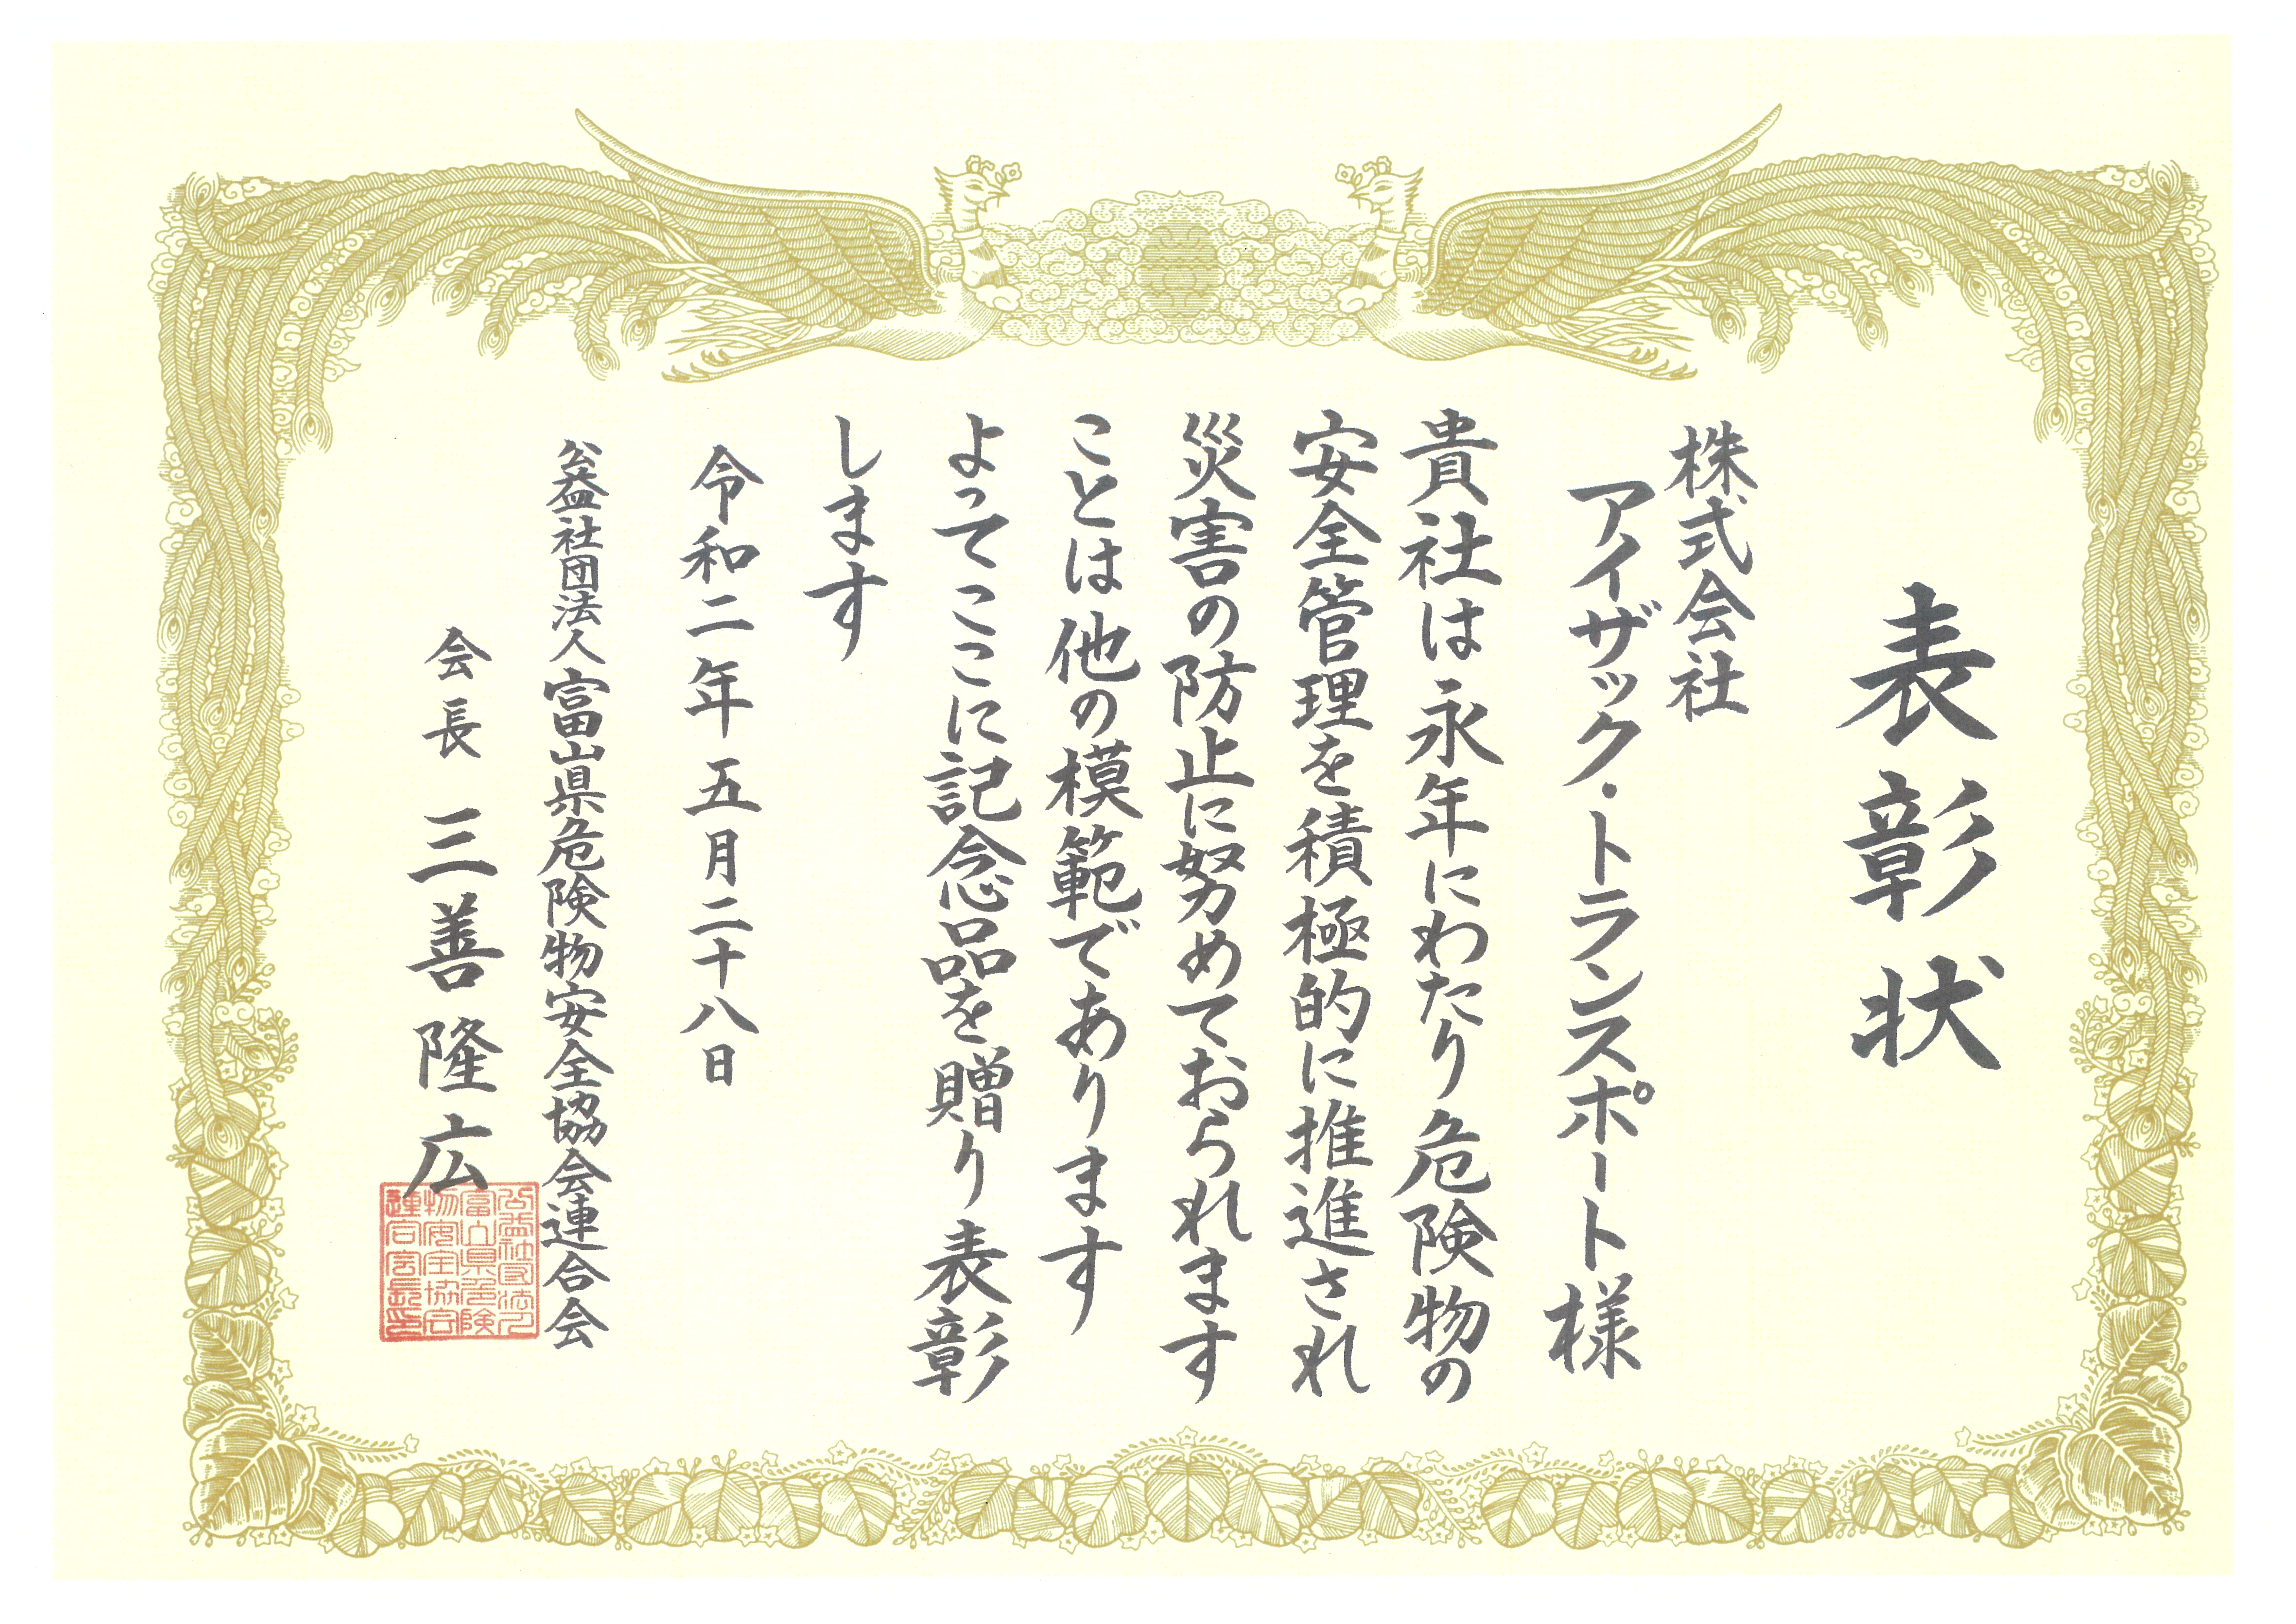 表彰状
株式会社
アイザック・トランスポート様
貴社は永年にわたり危険物の
安全管理を積極的に推進され
災害の防止に努めておられます
ことは他の模範であります
よってここに記念品を贈り表彰
します
令和二年五月二十八日
公益社団法人富山県危険物安全協会連合会
会長 三善隆広
公益社団法人
富山県危険
物安全協会
連合会長印